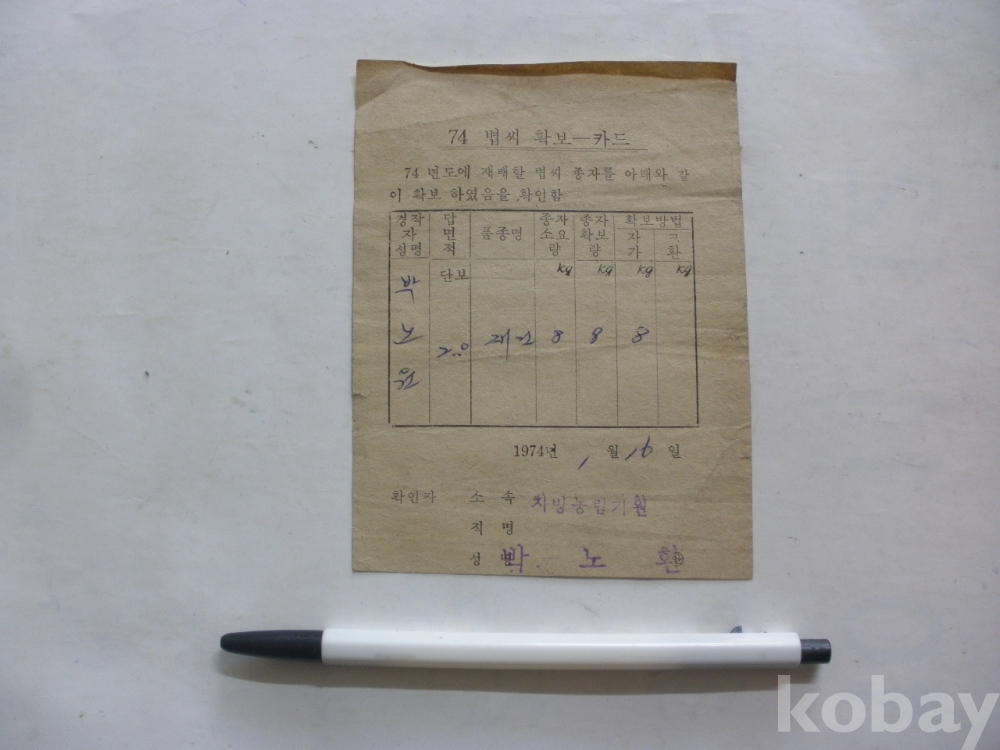 74 볍씨 확보—카드
74년도에 재배할 볍씨 종자를 아래와 같
이 확보 하였음을 확인함
경작자성명 답면적 품종명 종자소요량 종자확보량 확보방법
자가 교환
단보 kg kg kg kg
박노 2.0 재건 8 8 8
1974년 1월 16일
확인자 소속 지방농림기원
직명
성명 박노환
kobay